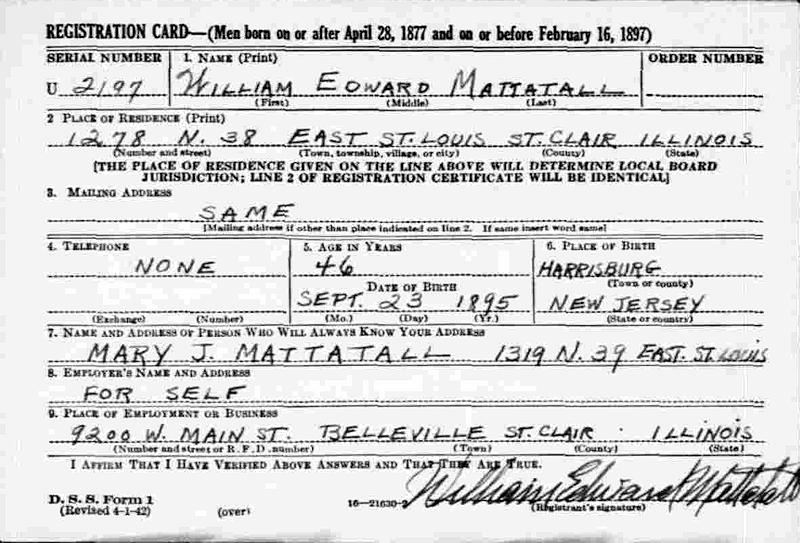 REGISTRATION CARD—(Men born on or after April 28, 1877 and on or before February 16, 1897)
SERIAL NUMBER 1. NAME (Print) ORDER NUMBER
U 2197 WILLIAM EDWARD MATTATALL
(First) (Middle) (Last)
2 PLACE OF RESIDENCE (Print)
1278 N. 38 EAST ST. LOUIS ST. CLAIR ILLINOIS
(Number and street) (Town, township, village, or city) (County) (State)
[THE PLACE OF RESIDENCE GIVEN ON THE LINE ABOVE WILL DETERMINE LOCAL BOARD
JURISDICTION; LINE 2 OF REGISTRATION CERTIFICATE WILL BE IDENTICAL]
3. MAILING ADDRESS
SAME
[Mailing address if other than place indicated on line 2. If same insert word same]
4. TELEPHONE 5. AGE IN YEARS 6. PLACE OF BIRTH
NONE 46 HARRISBURG
DATE OF BIRTH (Town or county)
SEPT. 23 1895 NEW JERSEY
(Exchange) (Number) (Mo.) (Day) (Yr.) (State or country)
7. NAME AND ADDRESS OF PERSON WHO WILL ALWAYS KNOW YOUR ADDRESS
MARY J. MATTATALL 1319 N. 39 EAST. ST. LOUIS
8. EMPLOYER'S NAME AND ADDRESS
FOR SELF
9. PLACE OF EMPLOYMENT OR BUSINESS
9200 W. MAIN ST. BELLEVILLE ST. CLAIR ILLINOIS
(Number and street or R. F. D. number) (Town) (County) (State)
I AFFIRM THAT I HAVE VERIFIED ABOVE ANSWERS AND THAT THEY ARE TRUE.
William Edward Mattatall
D. S. S. Form 1
(Revised 4-1-42) (over) 16—21630-2 (Registrant's signature)